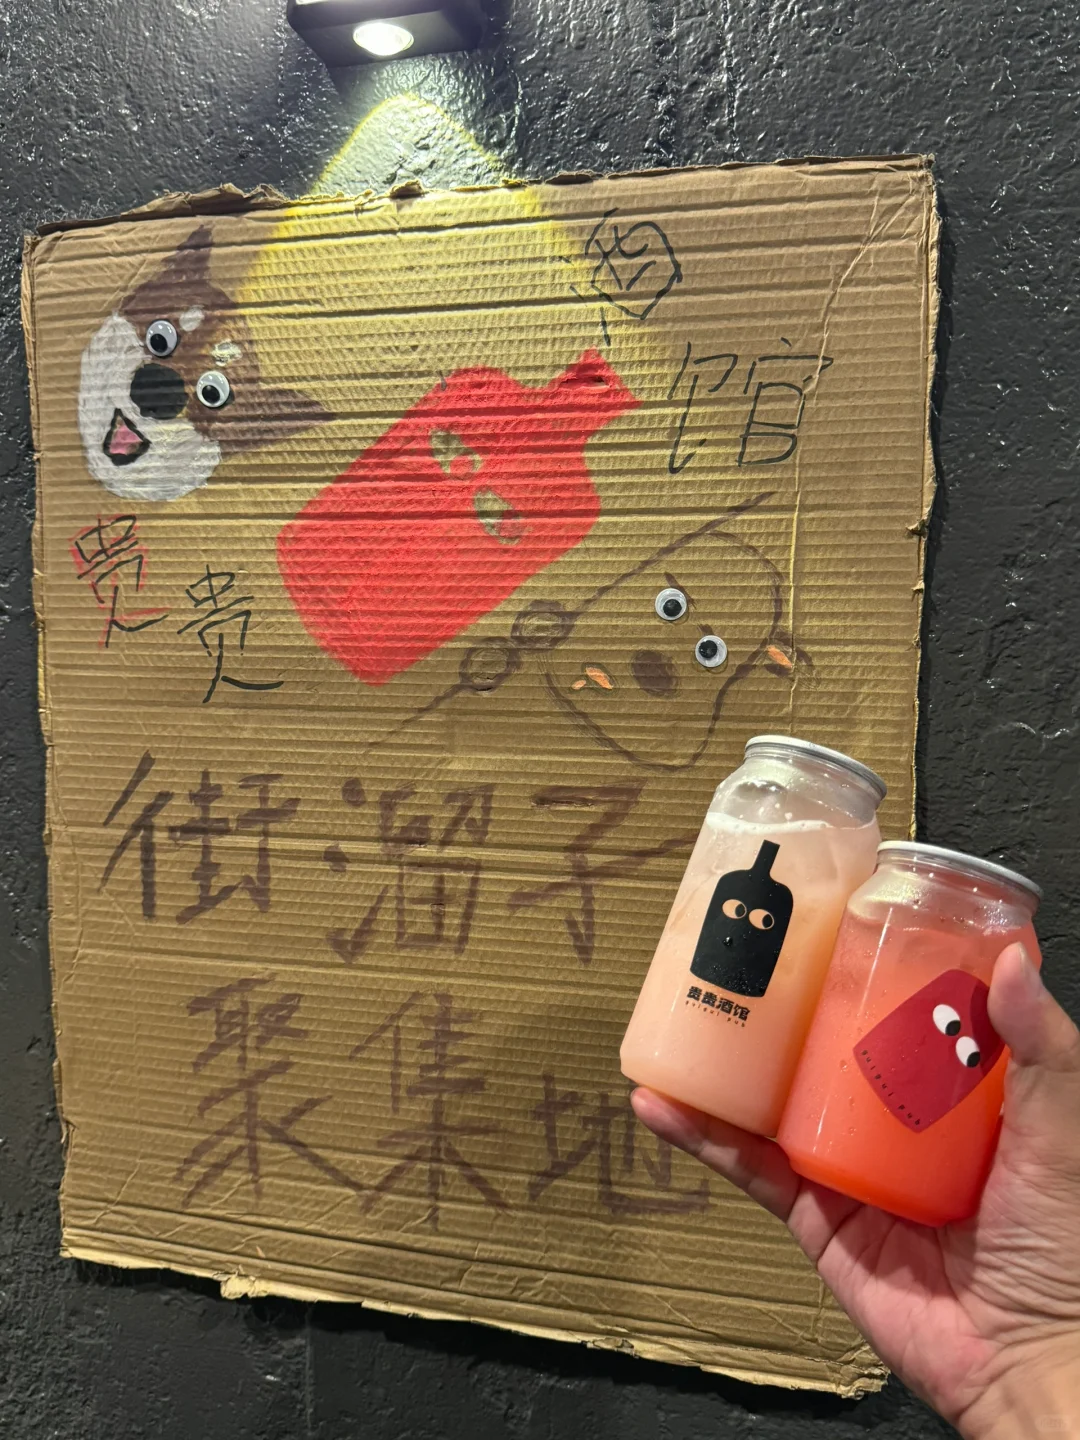 酒
馆
贵贵
街溜子
聚集地
贵贵酒馆
guigui pub
guigui pub